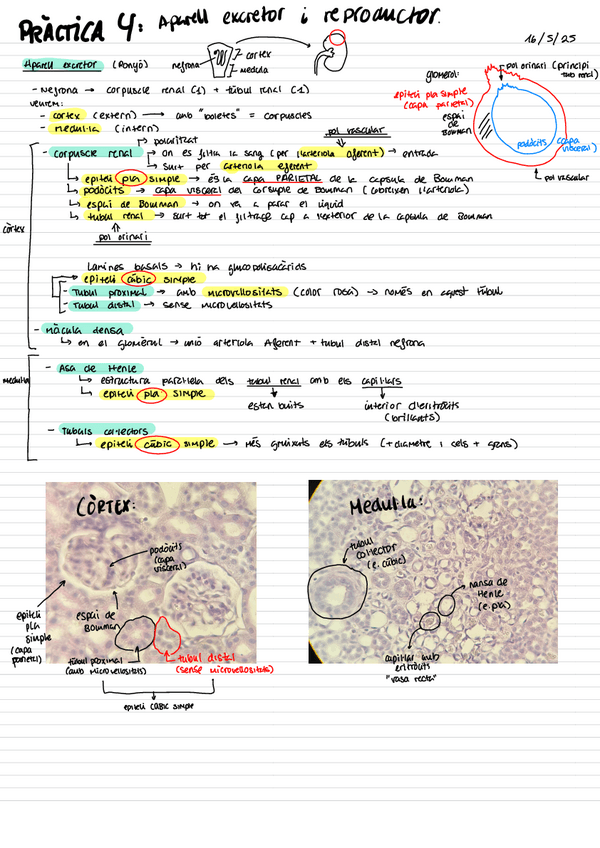 PRÀCTICA 4: Aparell excretor i reproductor.
16/5/25
Aparell excretor (Ronyó)
nefrona
cortex
medula
- Nefrona → corpuscle renal (1) + túbul renal (1)
veurem:
- cortex (extern) → amb "boletes" = corpuscles
- medul·la (intern)
glomèrul:
pol orinari (principi tub renal)
epiteli pla simple
(capa parietal)
espai
de
Bowman
podòcits (capa visceral)
pol vascular
còrtex
polaritzat
pol vascular
- Corpuscle renal → on es filtra la sang (per l'arteriola aferent) → entrada
↳ surt per arteriola eferent
↳ epiteli pla simple → és la capa PARIETAL de la capsula de Bowman
↳ podòcits → capa visceral de capsula de Bowman (cobreixen l'arteriola)
↳ espai de Bowman → on va a parar el líquid
↳ tubul renal → surt tot el filtrage cap a l'exterior de la capsula de Bowman
pol orinari
Lamines basals → hi ha glucopolisacàrids
↳ epiteli cúbic simple
- Túbul proximal → amb microvellositats (color rosa) → només en aquest túbul
- Túbul distal → sense microvellositats
- Màcula densa
↳ en el glomèrul → unió arteriola Aferent + túbul distal nefrona
medul·la
- Asa de Henle
↳ estructura paral·lela dels tubul renal amb els capil·lars
↳ epiteli pla simple
estan buits
interior d'eritròcits
(brillants)
- Tubuls col·lectors
↳ epiteli cúbic simple → Més gruixats els túbuls (+ diametre i cels + grans)
CÒRTEX:
podòcits
(capa
visceral)
epiteli
pla
simple
(capa
parietal)
espai de
Bowman
túbul proximal
(amb microvellositats)
túbul distal
(sense microvellositats)
epiteli cúbic simple
Medul·la:
túbul
col·lector
(e. cúbic)
nansa de
Henle
(e. pla)
capil·lar amb
eritròcits
"vasa recta"